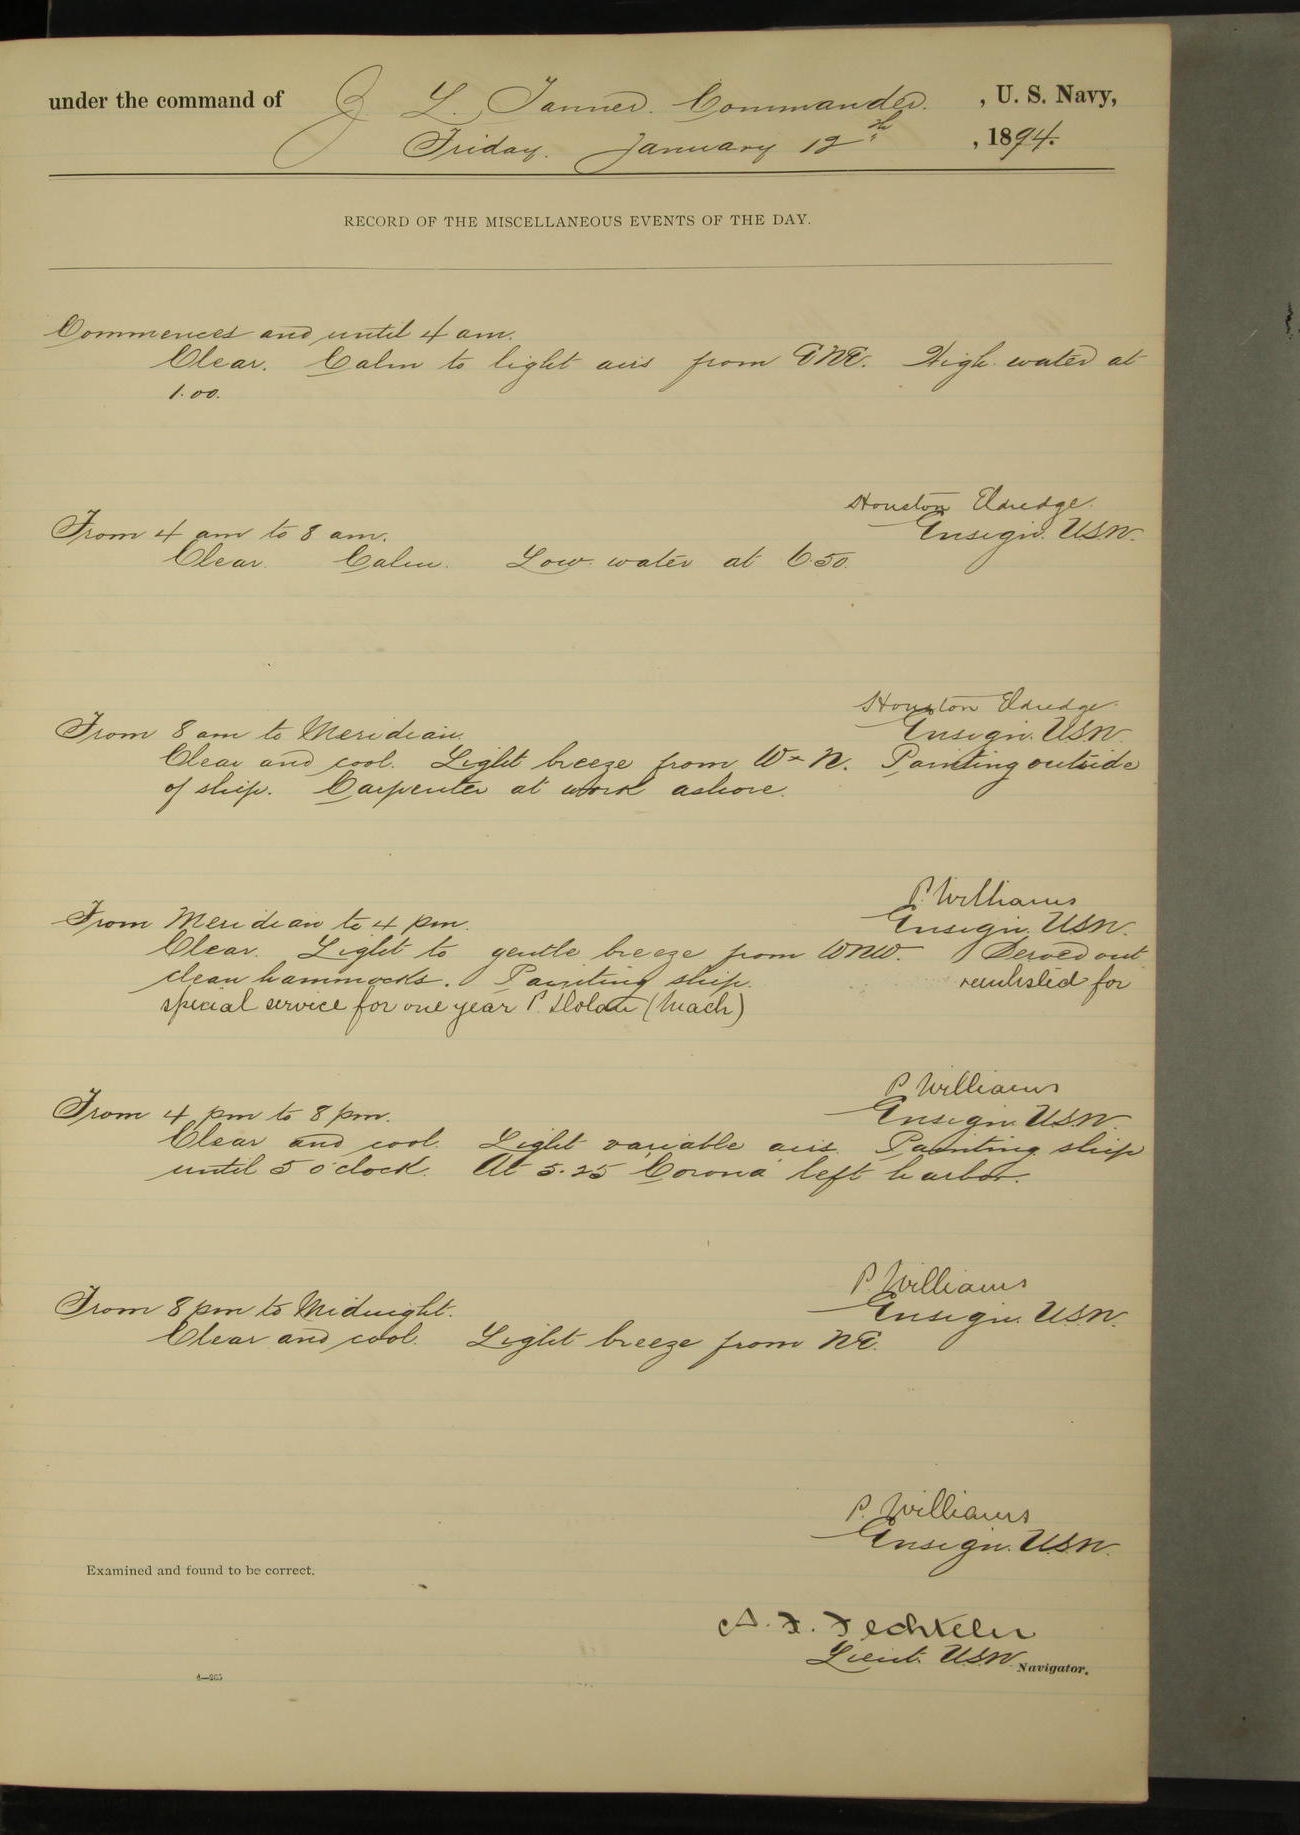 under the command of Z. L. Tanner. Commander. , U. S. Navy,
Friday. January 12th , 1894.
RECORD OF THE MISCELLANEOUS EVENTS OF THE DAY.
Commences and until 4 am.
Clear. Calm to light airs from ENE. High water at
1.00.
Houston Eldredge.
Ensign. USN.
From 4 am to 8 am.
Clear. Calm. Low water at 6.50.
Houston Eldredge.
Ensign. USN.
From 8 am to Meridian.
Clear and cool. Light breeze from W x N. Painting outside
of ship. Carpenter at work ashore.
P. Williams
Ensign. USN.
From Meridian to 4 pm.
Clear. Light to gentle breeze from WNW. Served out
clean hammocks. Painting ship. reenlisted for
special service for one year P. Dolan (Mach)
P. Williams
Ensign. USN.
From 4 pm to 8 pm.
Clear and cool. Light variable airs. Painting ship
until 5 o'clock. At 5.25 "Corona" left harbor.
P. Williams
Ensign. USN.
From 8 pm to Midnight.
Clear and cool. Light breeze from NE.
P. Williams
Ensign. U.S.N.
Examined and found to be correct.
A. F. Fechteler
Lieut. U.S.N. Navigator.